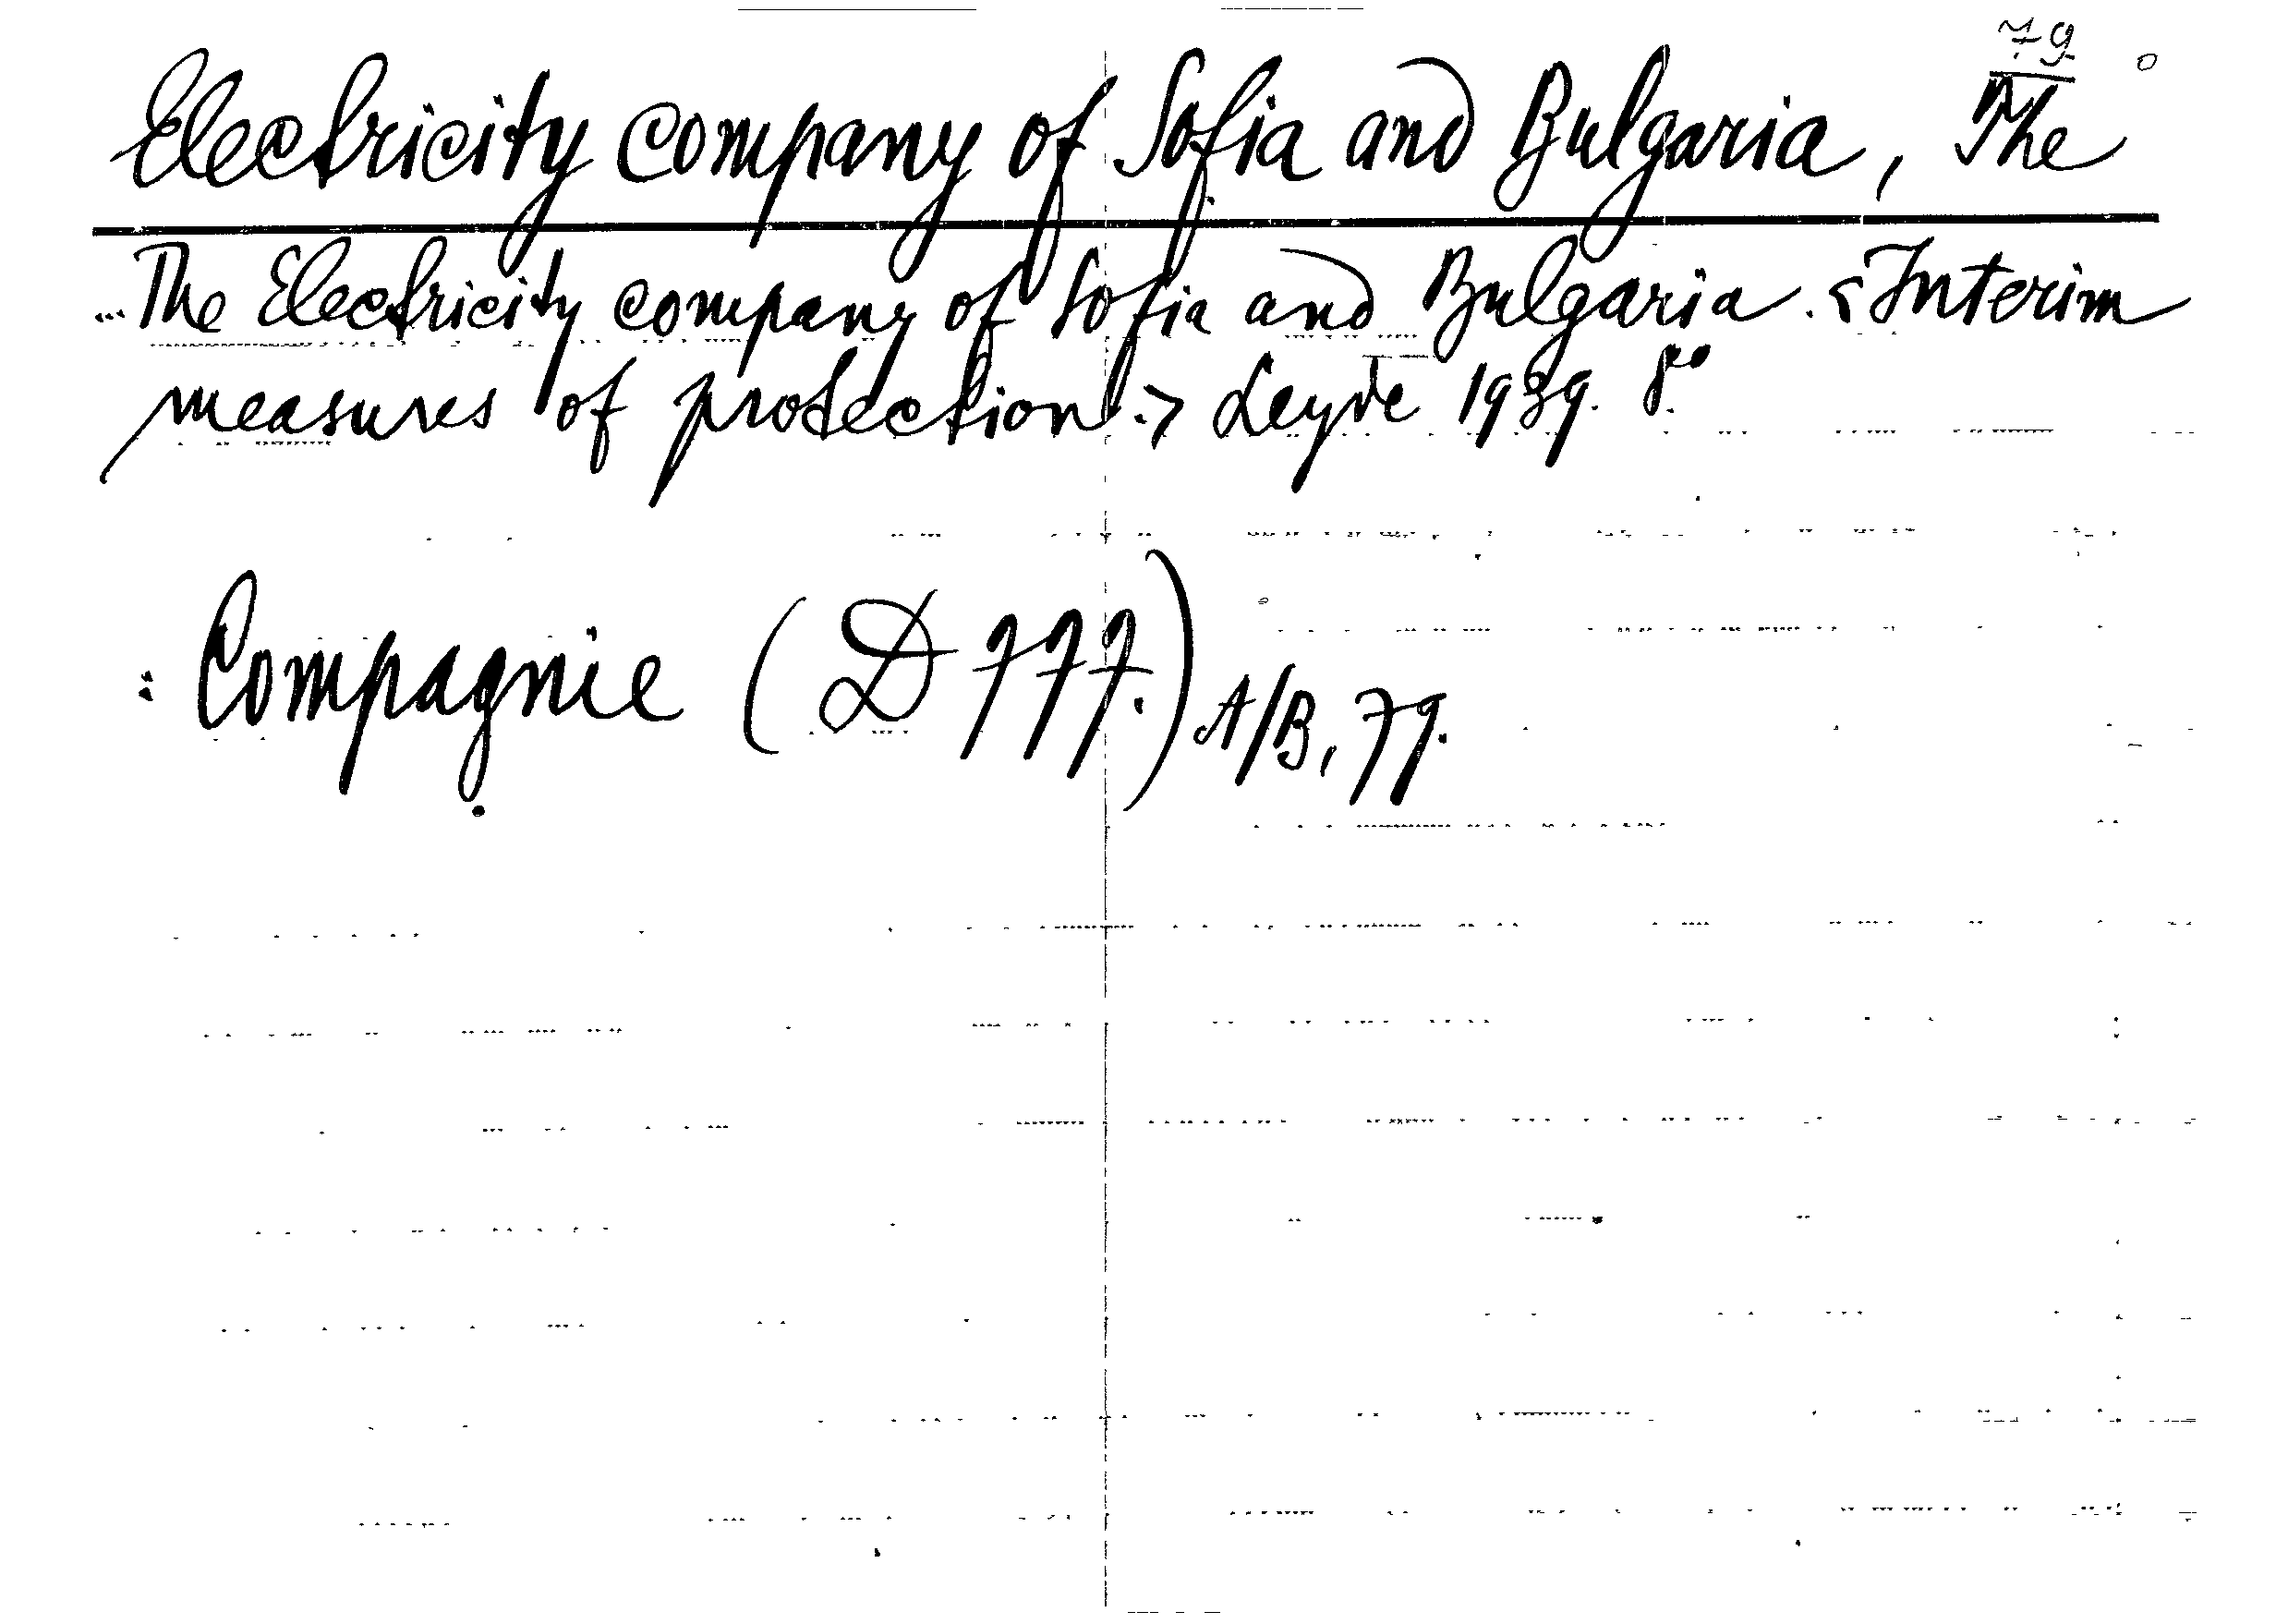 79
Electricity company of Sofia and Bulgaria, The
The Electricity company of Sofia and Bulgaria. <Interim
measures of protection.> Leyde 1939. 8°
: Compagnie (D 777.) A/B, 79.